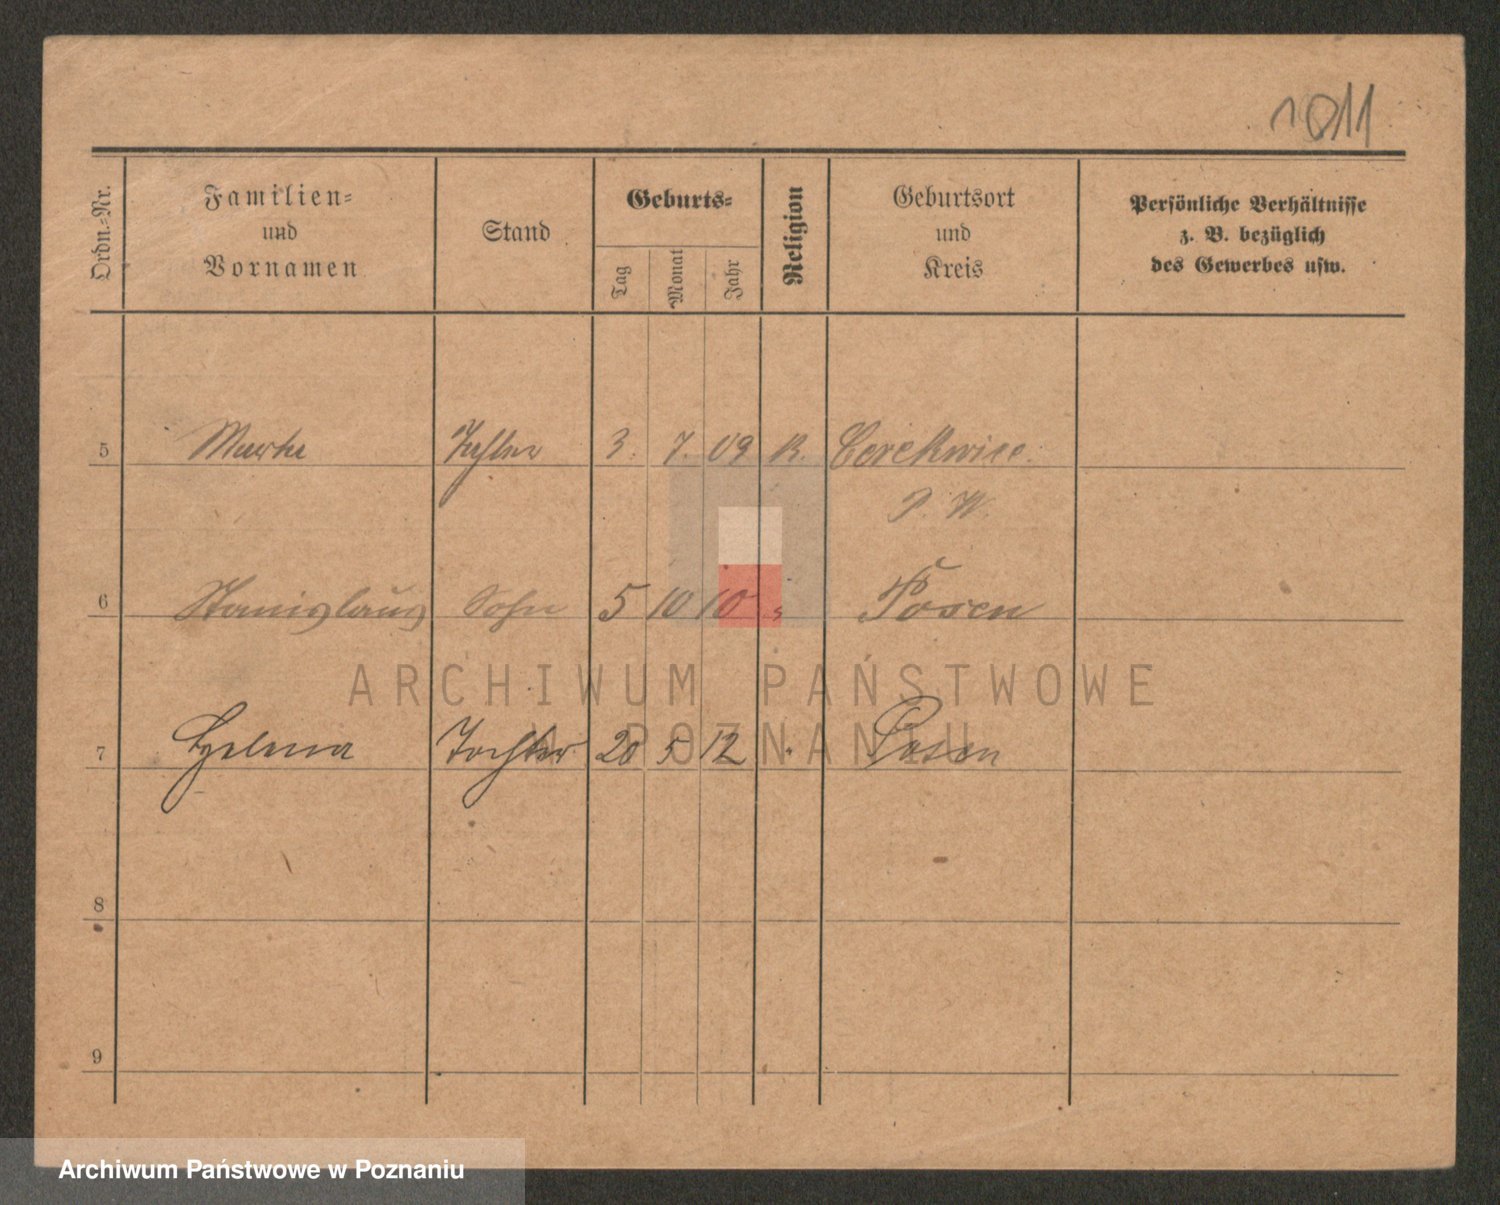 1011
Ordn.-Nr.
Familien-
und
Vornamen
Stand
Geburts-
Tag
Monat
Jahr
Religion
Geburtsort
und
Kreis
Persönliche Verhältnisse
z. B. bezüglich
des Gewerbes usw.
5 Tochter 3. 7. 09 K. Cerekwice
P. W.
6 Stanislaus Sohn 5 10 10 " Posen
ARCHIWUM PAŃSTWOWE
W POZNANIU
7 Helena Tochter 20 5 12 " Posen
8
9
Archiwum Państwowe w Poznaniu